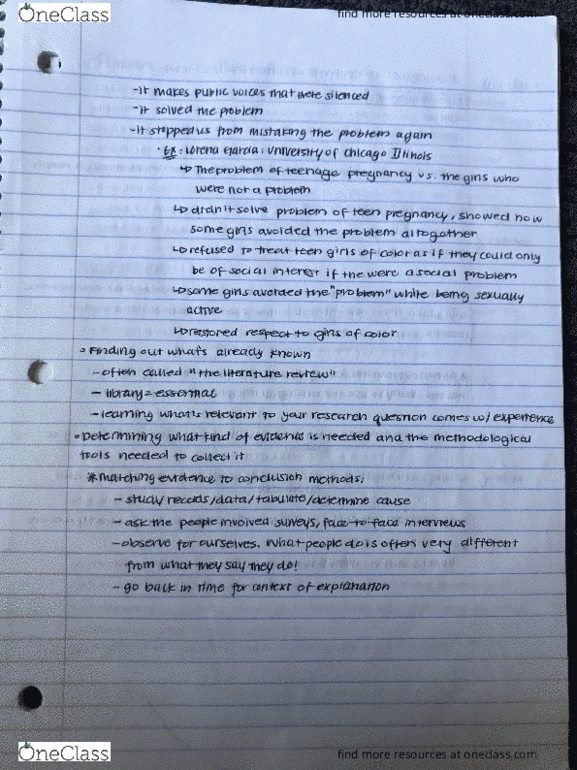 OneClass
find more resources at oneclass.com
-it makes public voices that were silenced
-it solved the problem
-it stopped us from mistaking the problem again
• Ex: Lorena Garcia: University of Chicago Illinois
↳ The problem of teenage pregnancy vs. the girls who
were not a problem
↳ didn't solve problem of teen pregnancy, showed how
some girls avoided the problem altogether
↳ refused to treat teen girls of color as if they could only
be of social interest if the were a social problem
↳ some girls avoided the "problem" while being sexually
active
↳ restored respect to girls of color
• Finding out what's already known
- often called "the literature review"
- library = essential
- learning what's relevant to your research question comes w/ experience
• Determining what kind of evidence is needed and the methodological
tools needed to collect it
* Matching evidence to conclusion methods:
- study/records/data/tabulate/determine cause
- ask the people involved surveys, face-to-face interviews
- observe for ourselves. What people do is often very different
from what they say they do!
- go back in time for context of explanation
OneClass
find more resources at oneclass.com